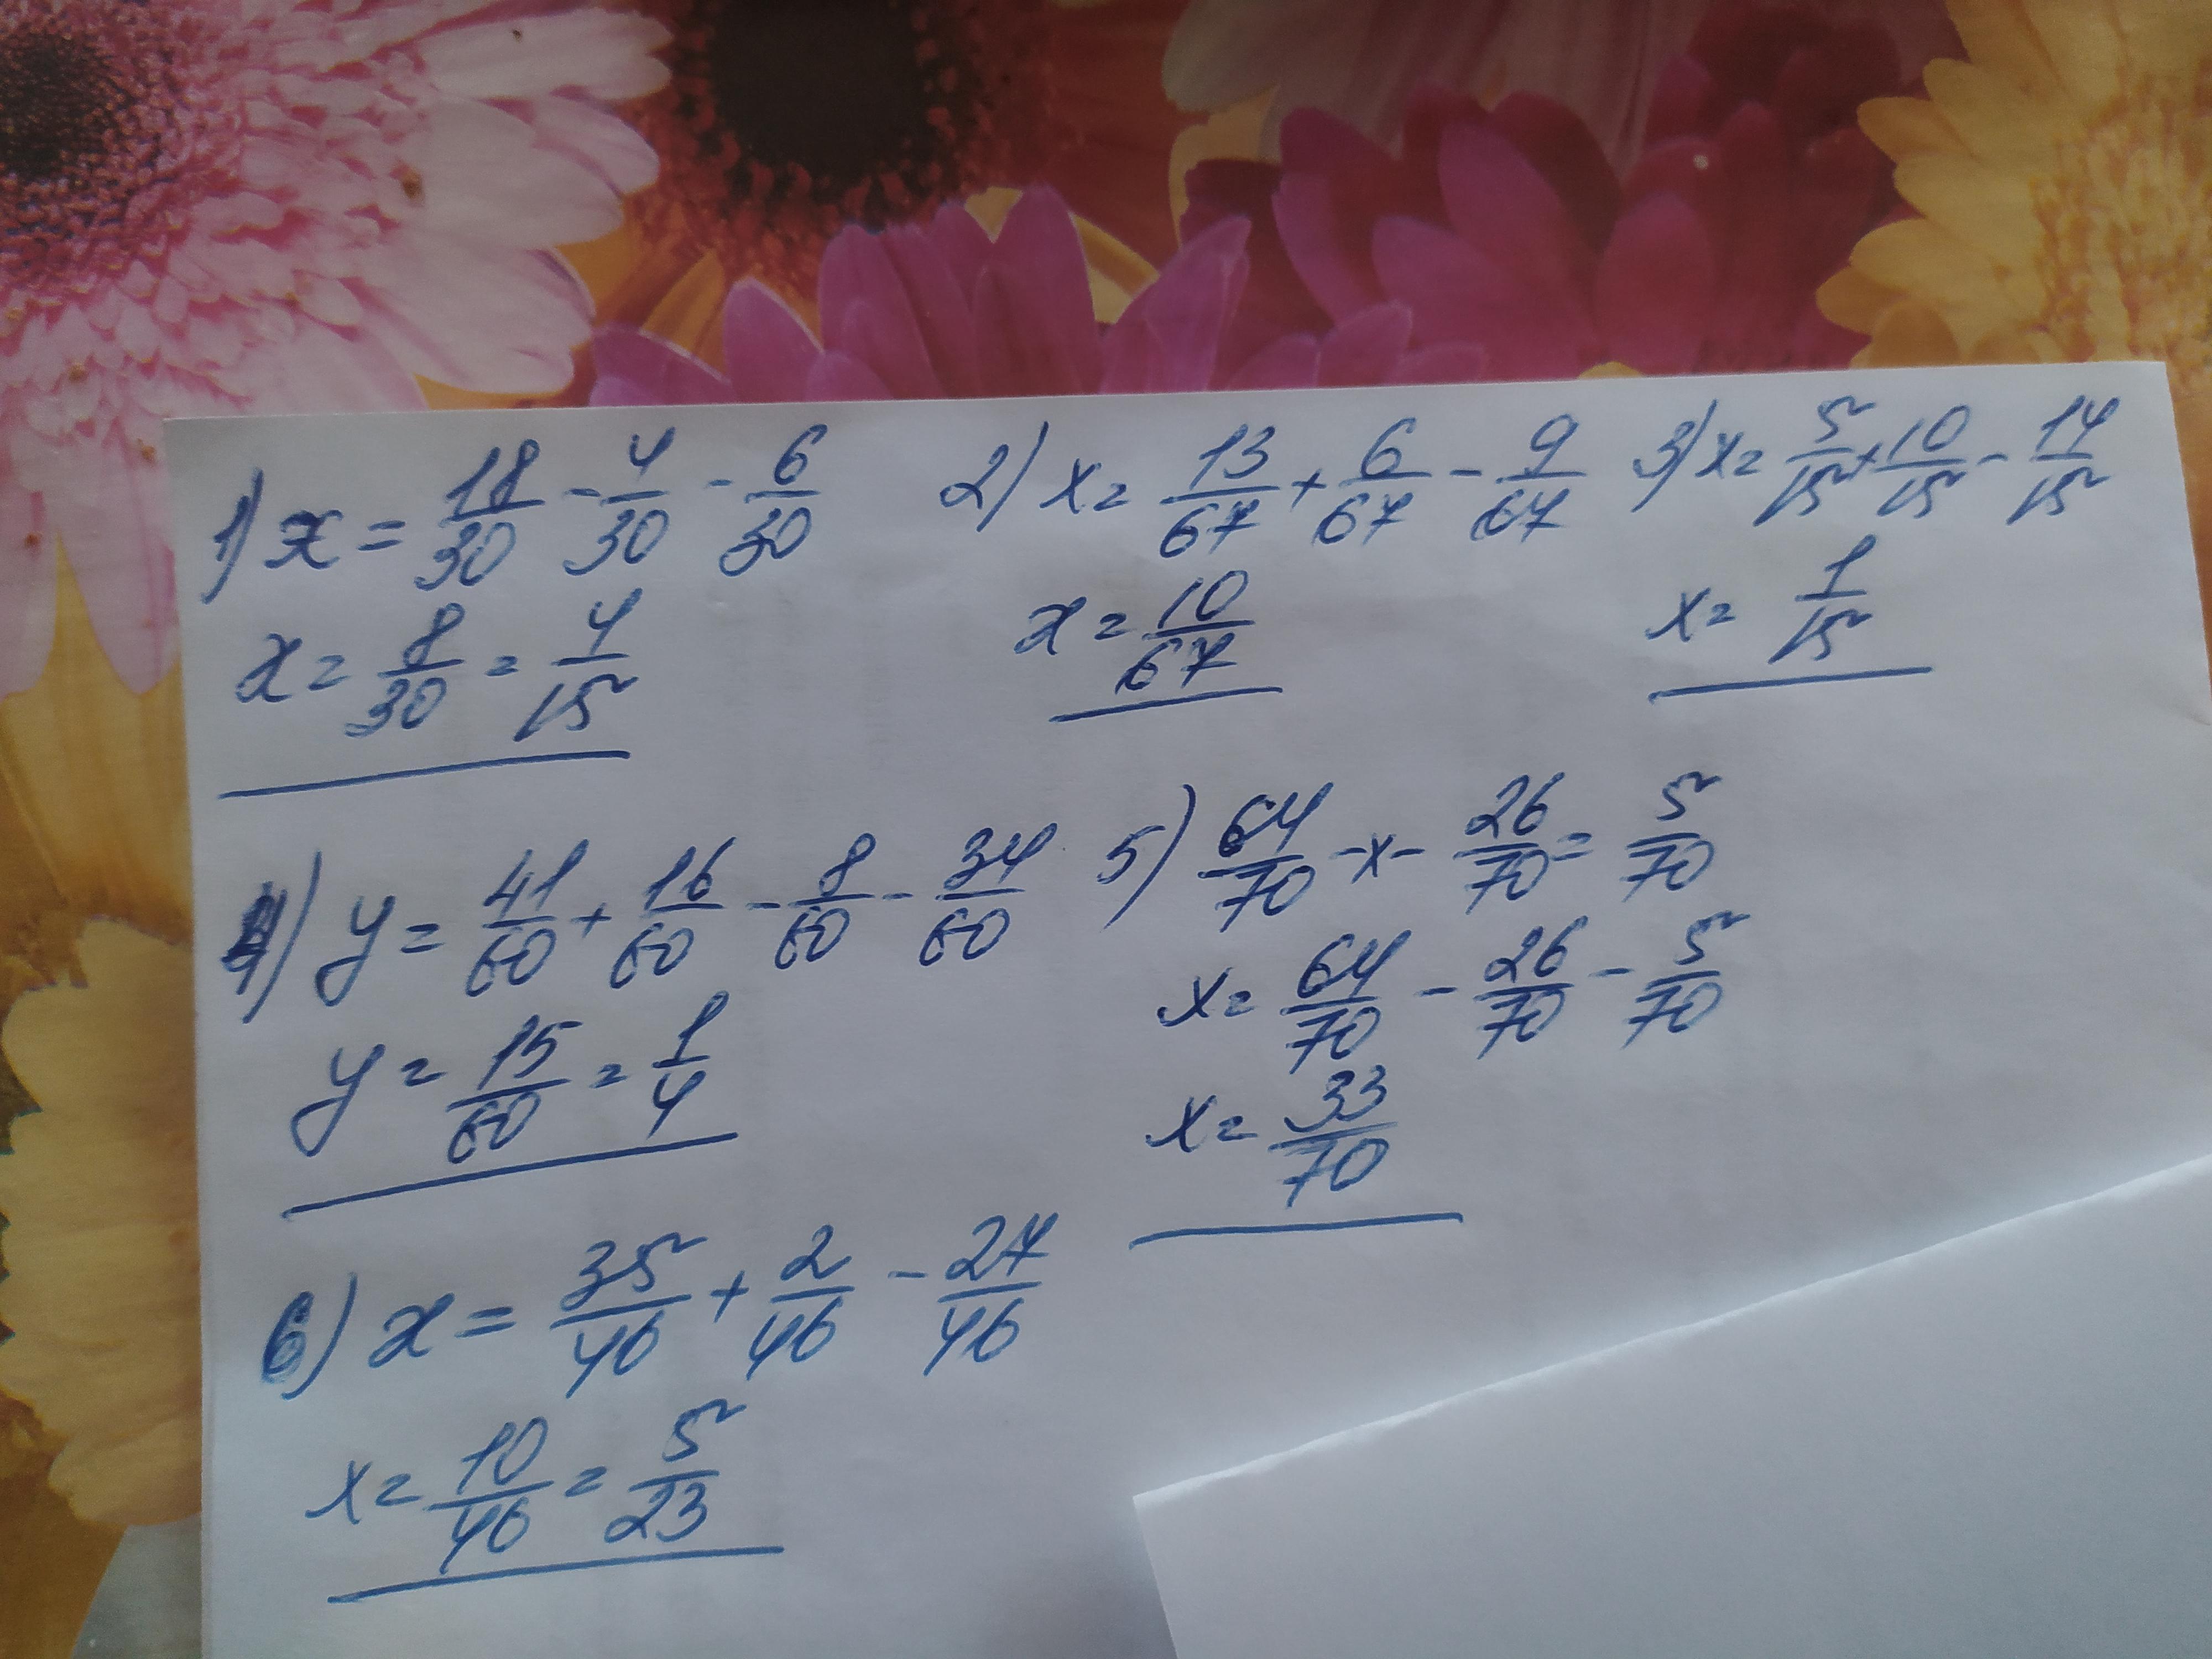 1) x = 18/30 - 4/30 - 6/30
x = 8/30 = 4/15
2) x = 13/67 + 6/67 - 9/67
x = 10/67
3) x = 5/15 + 10/15 - 14/15
x = 1/15
4) y = 41/60 + 16/60 - 8/60 - 34/60
y = 15/60 = 1/4
5) 64/70 - x - 26/70 = 5/70
x = 64/70 - 26/70 - 5/70
x = 33/70
6) x = 35/46 + 2/46 - 27/46
x = 10/46 = 5/23